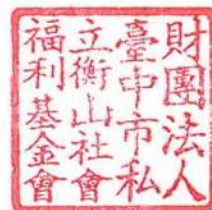 財團法人
臺中市私
立衡山社會
福利基金會